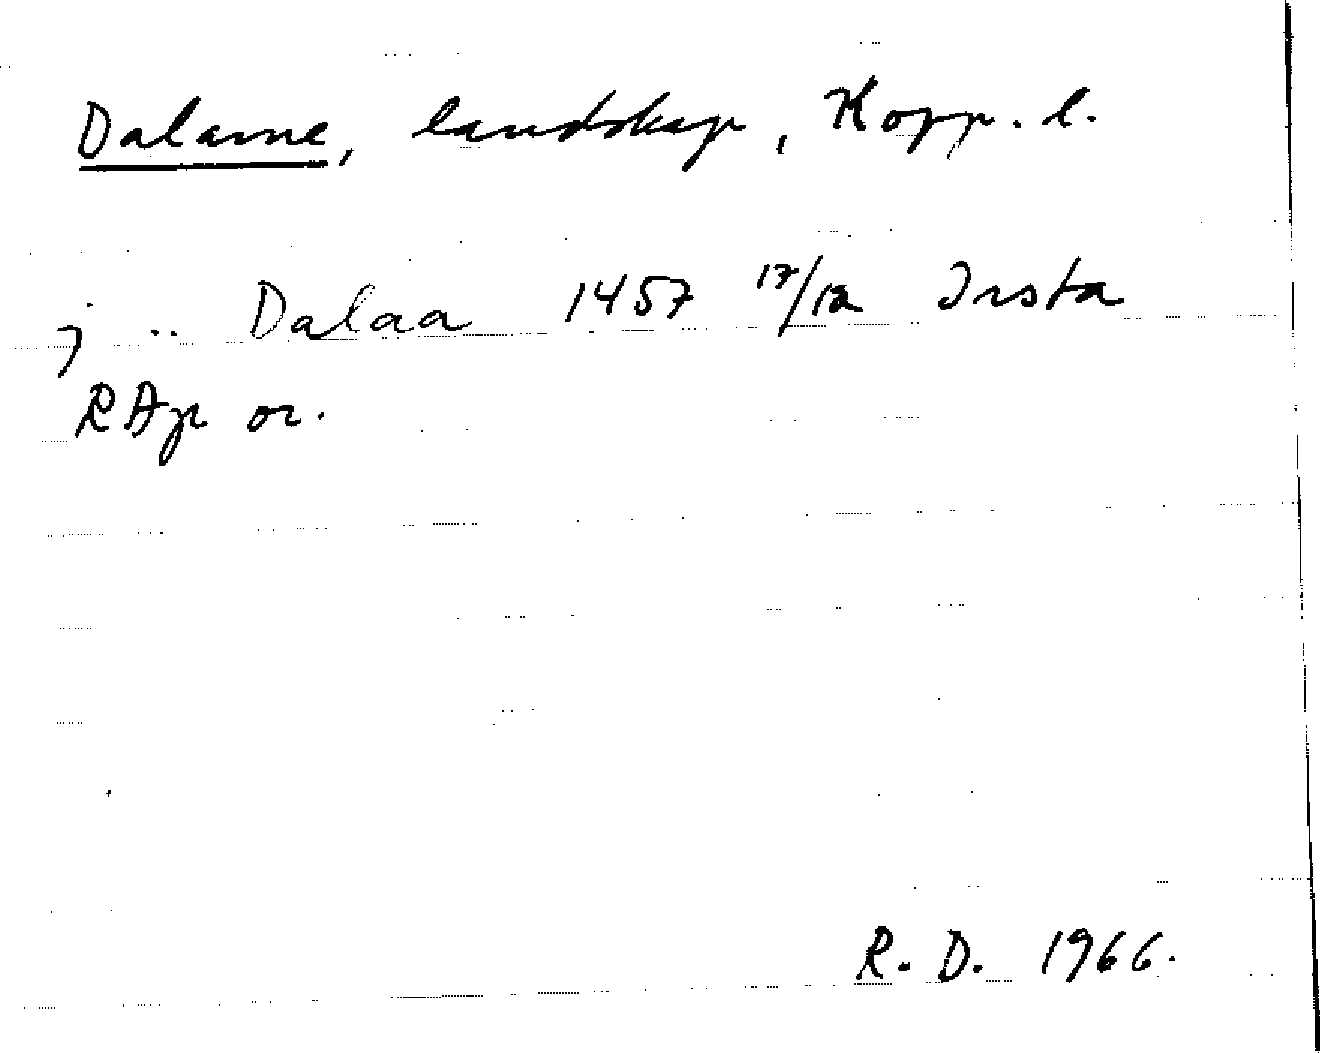 Dalarne, landskap, Kopp. l.
j .. Dalaa 1457 17/12 Irsta
RAp or.
R. D. 1966.